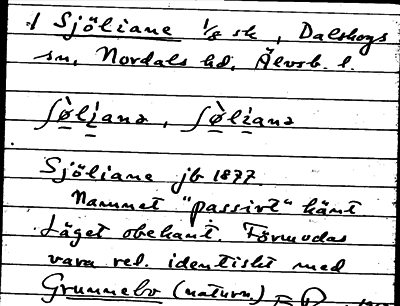 Sjöliane 1/8 sk, Dalskogs
sn, Nordals hd, Älvsb. l.
ʃø̀liana, ʃø̀liana
Sjöliane jb 1877.
Namnet "passivt" känt
Läget obekant. Förmodas
vara rel. identiskt med
Grunnebo (naturn.)